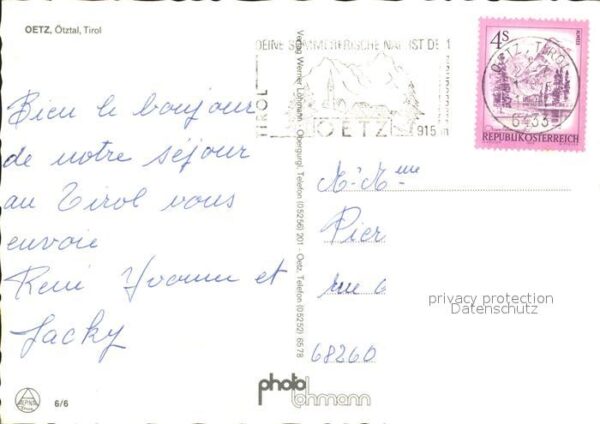 OETZ, Ötztal, Tirol
Bien le bonjour
de notre séjour
au Tirol vous
envoie
René Yvonne et
Jacky
6/6
Verlag Werner Lohmann - Obergurgl, Telefon (05256) 201 - Oetz, Telefon (05252) 6578
photo
lohmann
DEINE SOMMERFRISCHE NAH IST DE
TIROL
OETZ
915 m
4S
OETZ, TIROL
6433
REPUBLIK ÖSTERREICH
M. Mme
Pier
rue
68260
privacy protection
Datenschutz